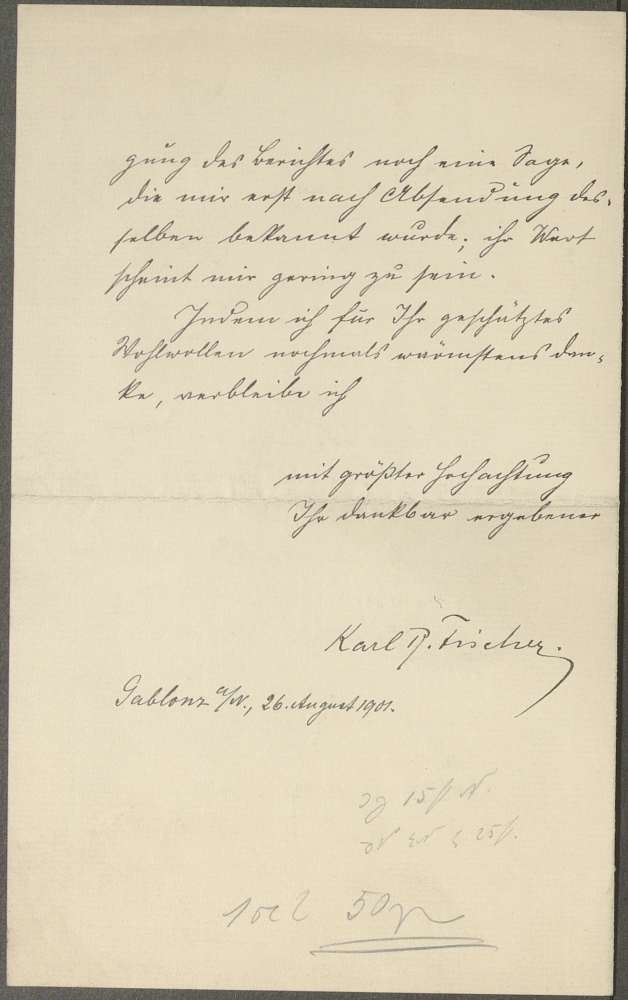 gung des Berichtes noch eine Sage,
die mir erst nach Absendung des-
selben bekannt wurde; ihr Wert
scheint mir gering zu sein.
Indem ich für Ihr geschätztes
Wohlwollen nochmals wärmstens dan-
ke, verbleibe ich
mit größter Hochachtung
Ihr dankbar ergebener
Karl R. Fischer.
Gablonz a/N., 26. August 1901.
15
25
50